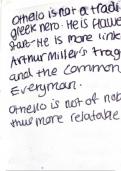 Othello is not a tradi
greek hero. He is flawe
start. He is more link
Arthur Miller's trag
and the common
Everyman.
Othello is not of nob
thus more relatable